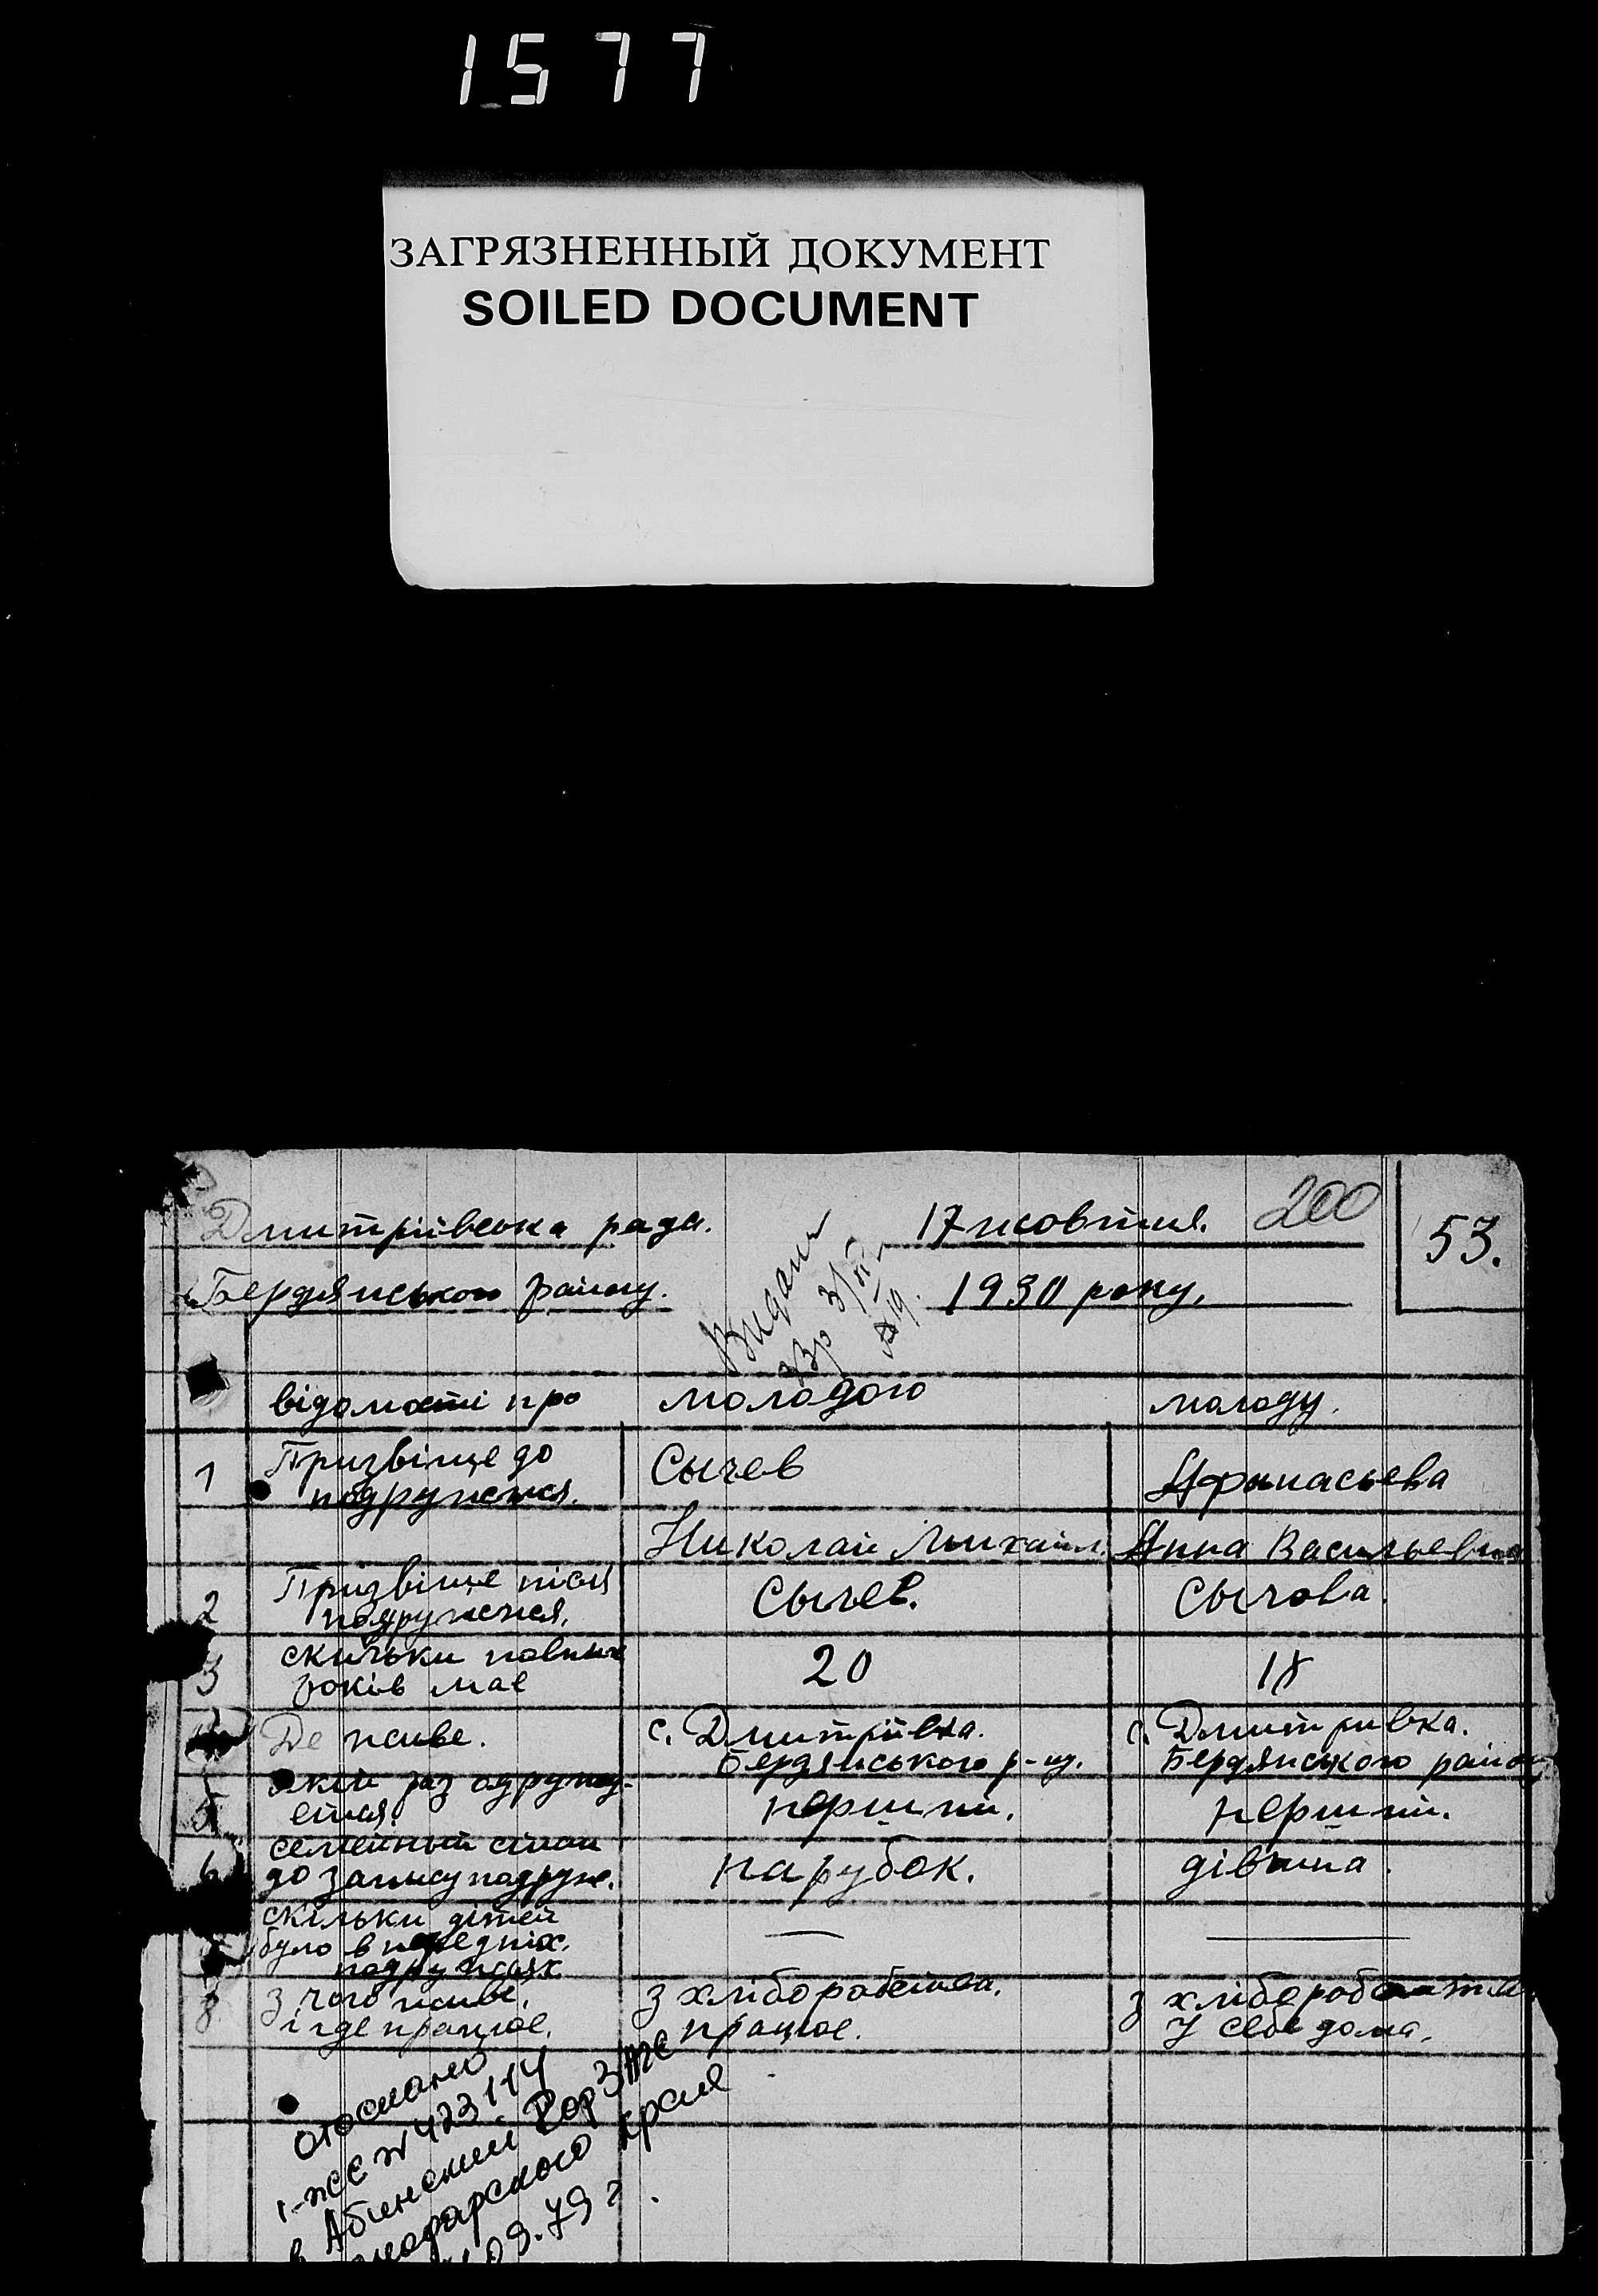 1577
ЗАГРЯЗНЕННЫЙ ДОКУМЕНТ
SOILED DOCUMENT
Дмитріївська рада. 17 жовтня. 200 53.
Бердянського району. 1930 року.
Видани
відомости про молодого молоду.
1 Призвіще до подруження. Сычев Афанасьева
Николай Михайл. Анна Васильевна
2 Призвіще після подруження. Сычев. Сычова.
3 скильки повних років має 20 18
Де живе. с. Дмитріївка. с. Дмитривка.
Бердянського р-ну. Бердянського району
5 який раз одружу-
ется. перший. перший.
6 семейный стан
до запису подруж. парубок. дівчина.
скільки дітей — —
було в передніх.
подружжях
8. з чого живе, з хліборобства. з хліборобства
і где працює. працює. У себе дома.
отослано
I-ЖС № 423114
в Абинский Гор ЗАГС
Краснодарского края
09.79 г.